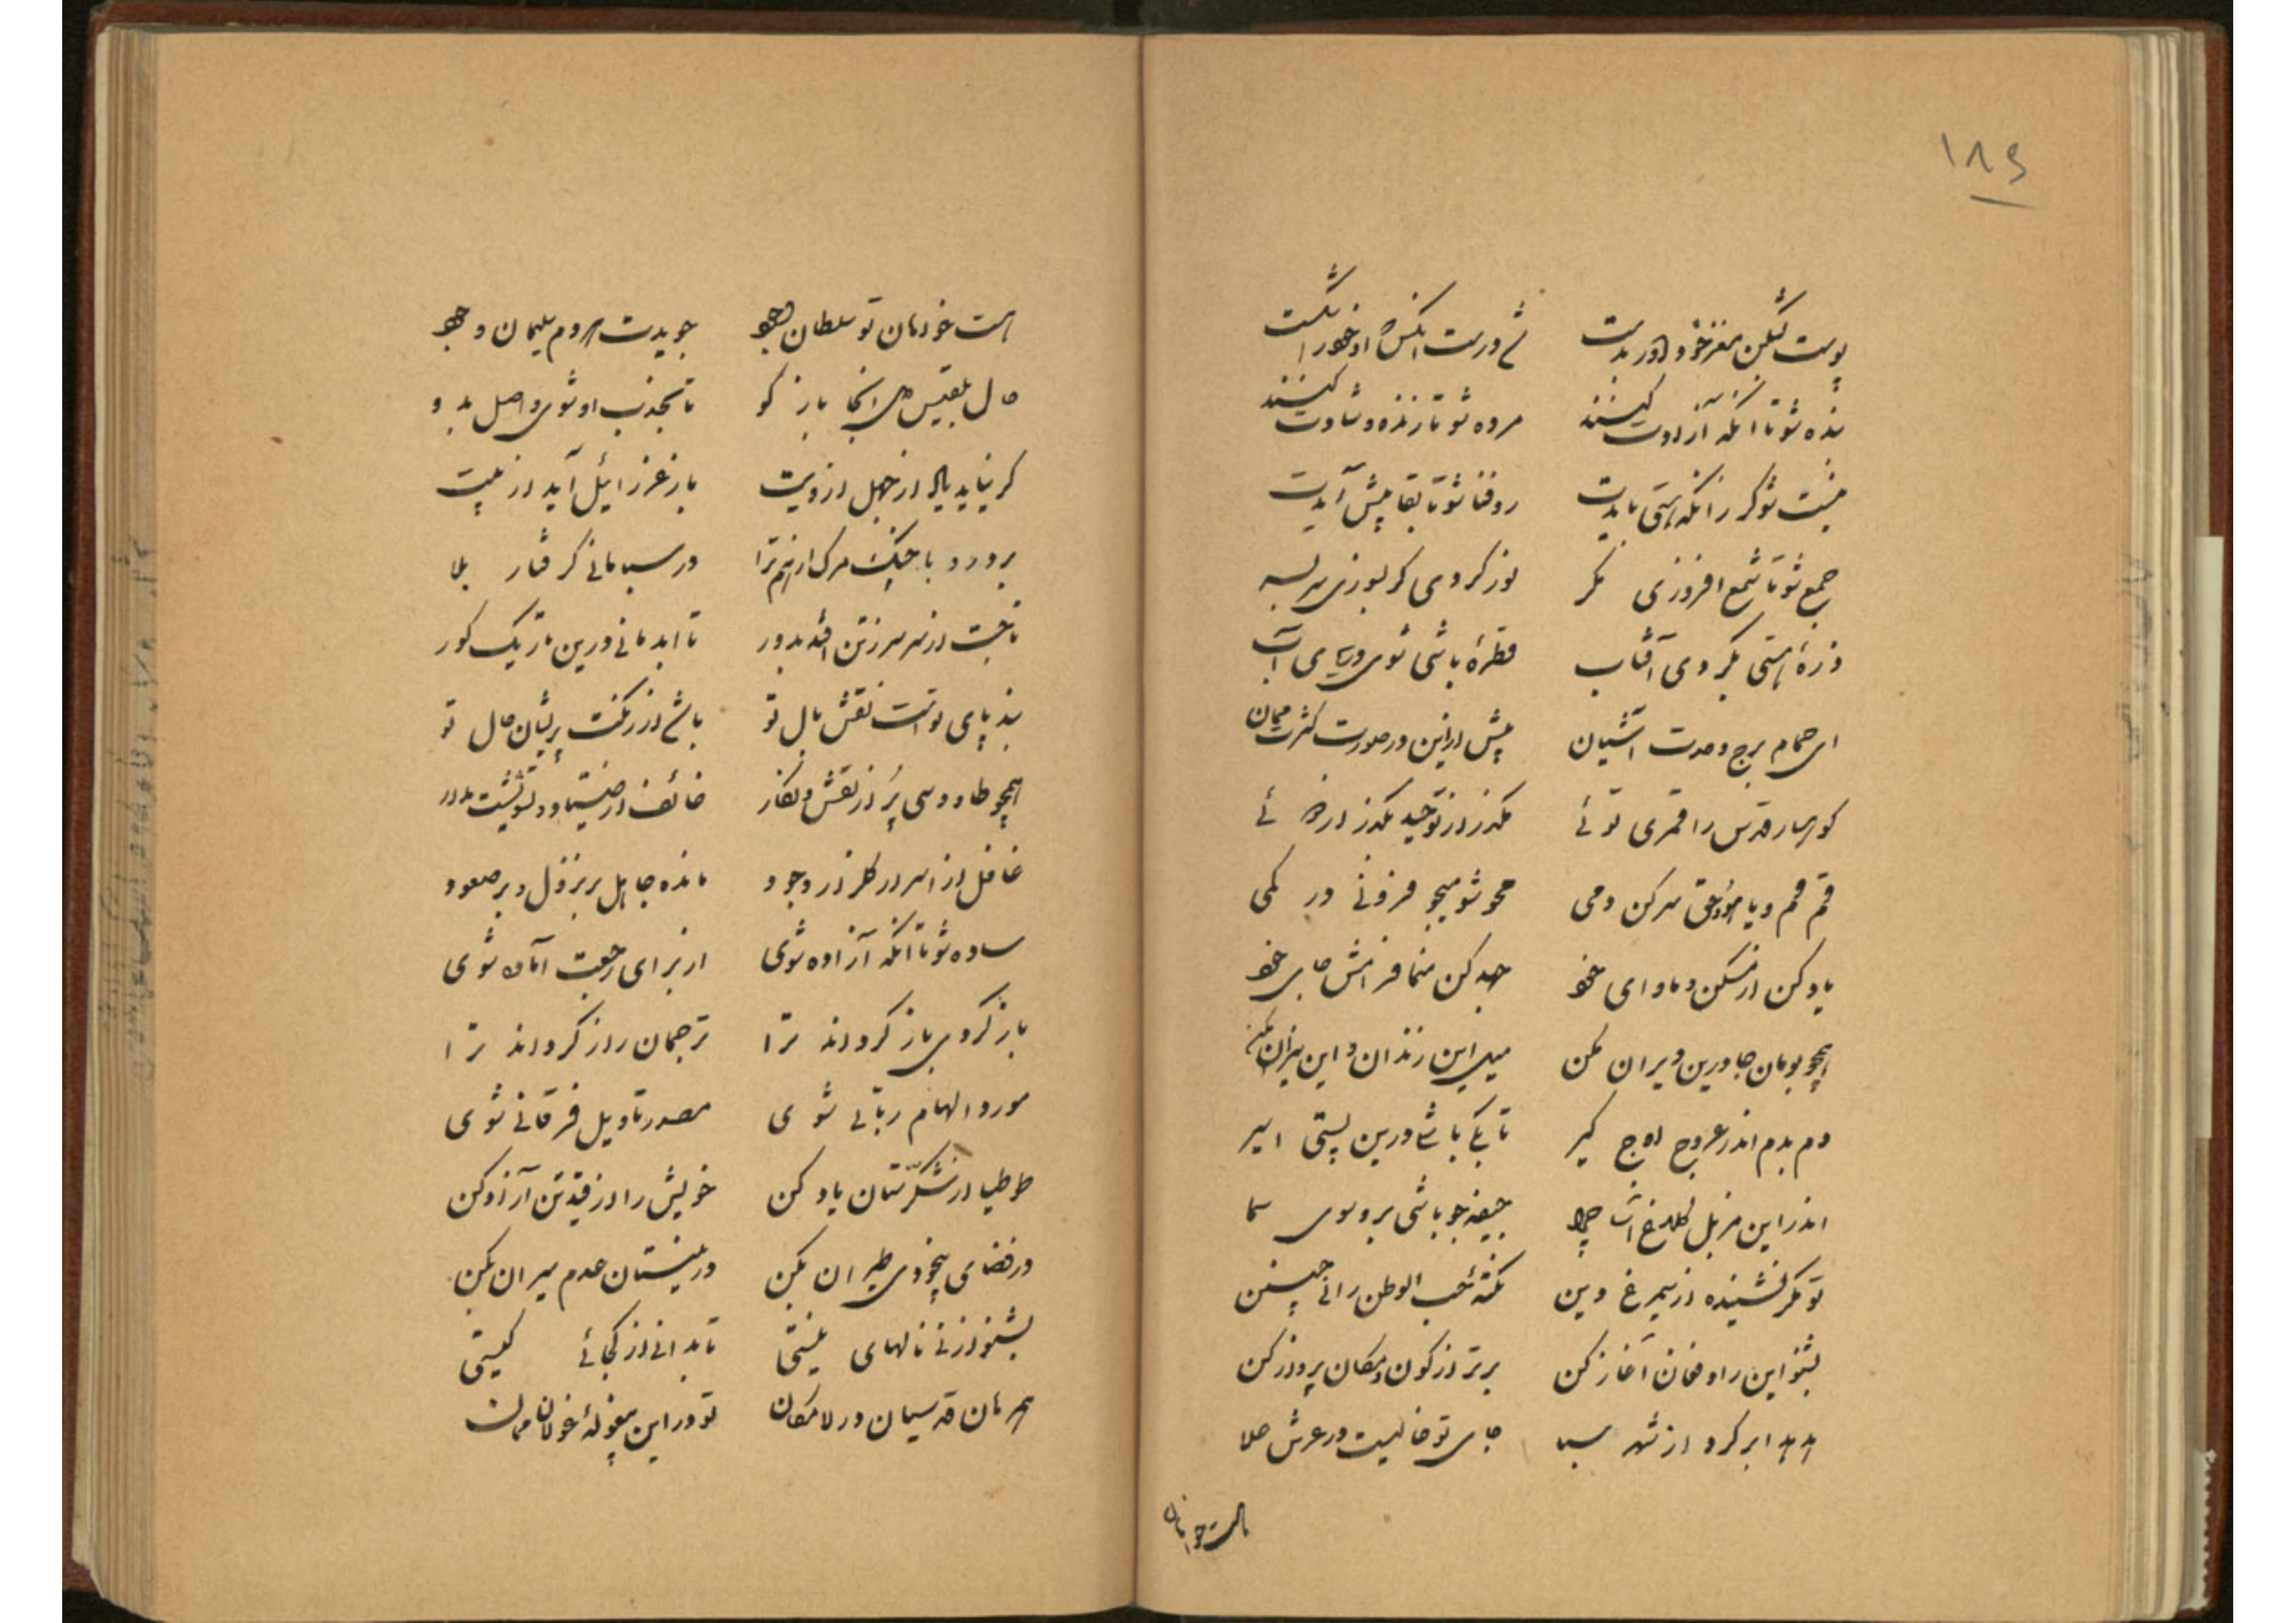 ۱۸۶
پوست بشکن مغز خود را در بدست
شد درست آنکس که او خود را شکست
بنده شو تا آنکه آزادت کنند
مرده شو تا زنده و شادت کنند
نیست شو گر زانکه هستی بایدت
رو فنا شو تا بقا پیش آیدت
جمع شو تا شمع افروزی مگر
نور گردی گر بسوزی سر بسر
ذرهٔ هستی بگردی آفتاب
قطرهٔ باشی شوی دریای آب
ای حمام برج وحدت آشیان
پیش ازین در صورت کثرت ممان
کوهسار قدس را قمری توئی
بگذر از توحید بگذر از دوئی
قم قم و یا هو و حق سر کن دمی
محو شو میجو فزونی در کمی
یاد کن از مسکن و ماوای خود
جهد کن منما فرامش جای خود
همچو بومان جا درین ویران مکن
میل این زندان و این نیران مکن
دم بدم اندر عروج اوج گیر
تا بکی باشی درین پستی اسیر
اندر این مزبل کلاغ آسا چرا
جیفه جو باشی برو سوی سما
تو مگر نشنیده از سیمرغ دین
نکتهٔ حب الوطن را اینچنین
بشنو این را و فغان آغاز کن
برتر از کون و مکان پرواز کن
هدهدا بر گرد از شهر سبا
جای تو خالیست در عرش علا
هست خواهان
هست خواهان تو سلطان وجود
جویدت هر دم سلیمان وجود
حال بلقیس هی اینجا باز گو
تا بجذب او شوی واصل بدو
گر نیاید یاد از جهل از ویت
باز عزرائیل آید از پیت
بردرد با چنگ مرگ از هم ترا
در سبا مانی گرفتار بلا
تاجت از سر سر ز تن افتد بدور
تا ابد مانی درین تاریک گور
بند پای تو است نقش بال تو
باشد از رنگت پریشان حال تو
همچو طاووسی پر از نقش و نگار
غافل از اسرار گلزار وجود
مانده جاهل بر نزول و بر صعود
ساده شو تا آنکه آزاده شوی
از برای رجعت آماده شوی
باز گردی باز گردانند ترا
ترجمان راز گردانند ترا
مورد الهام ربانی شوی
مصدر تاویل فرقانی شوی
طوطیا از شکرستان یاد کن
خویش را از قید تن آزاد کن
در فضای بیخودی طیران بکن
در نیستان عدم سیران بکن
بشنو از نی نالهای نیستی
تا بدانی از کجائی کیستی
همرهان قدسیان در لامکان
تو در این بیغولهٔ غولان ممان